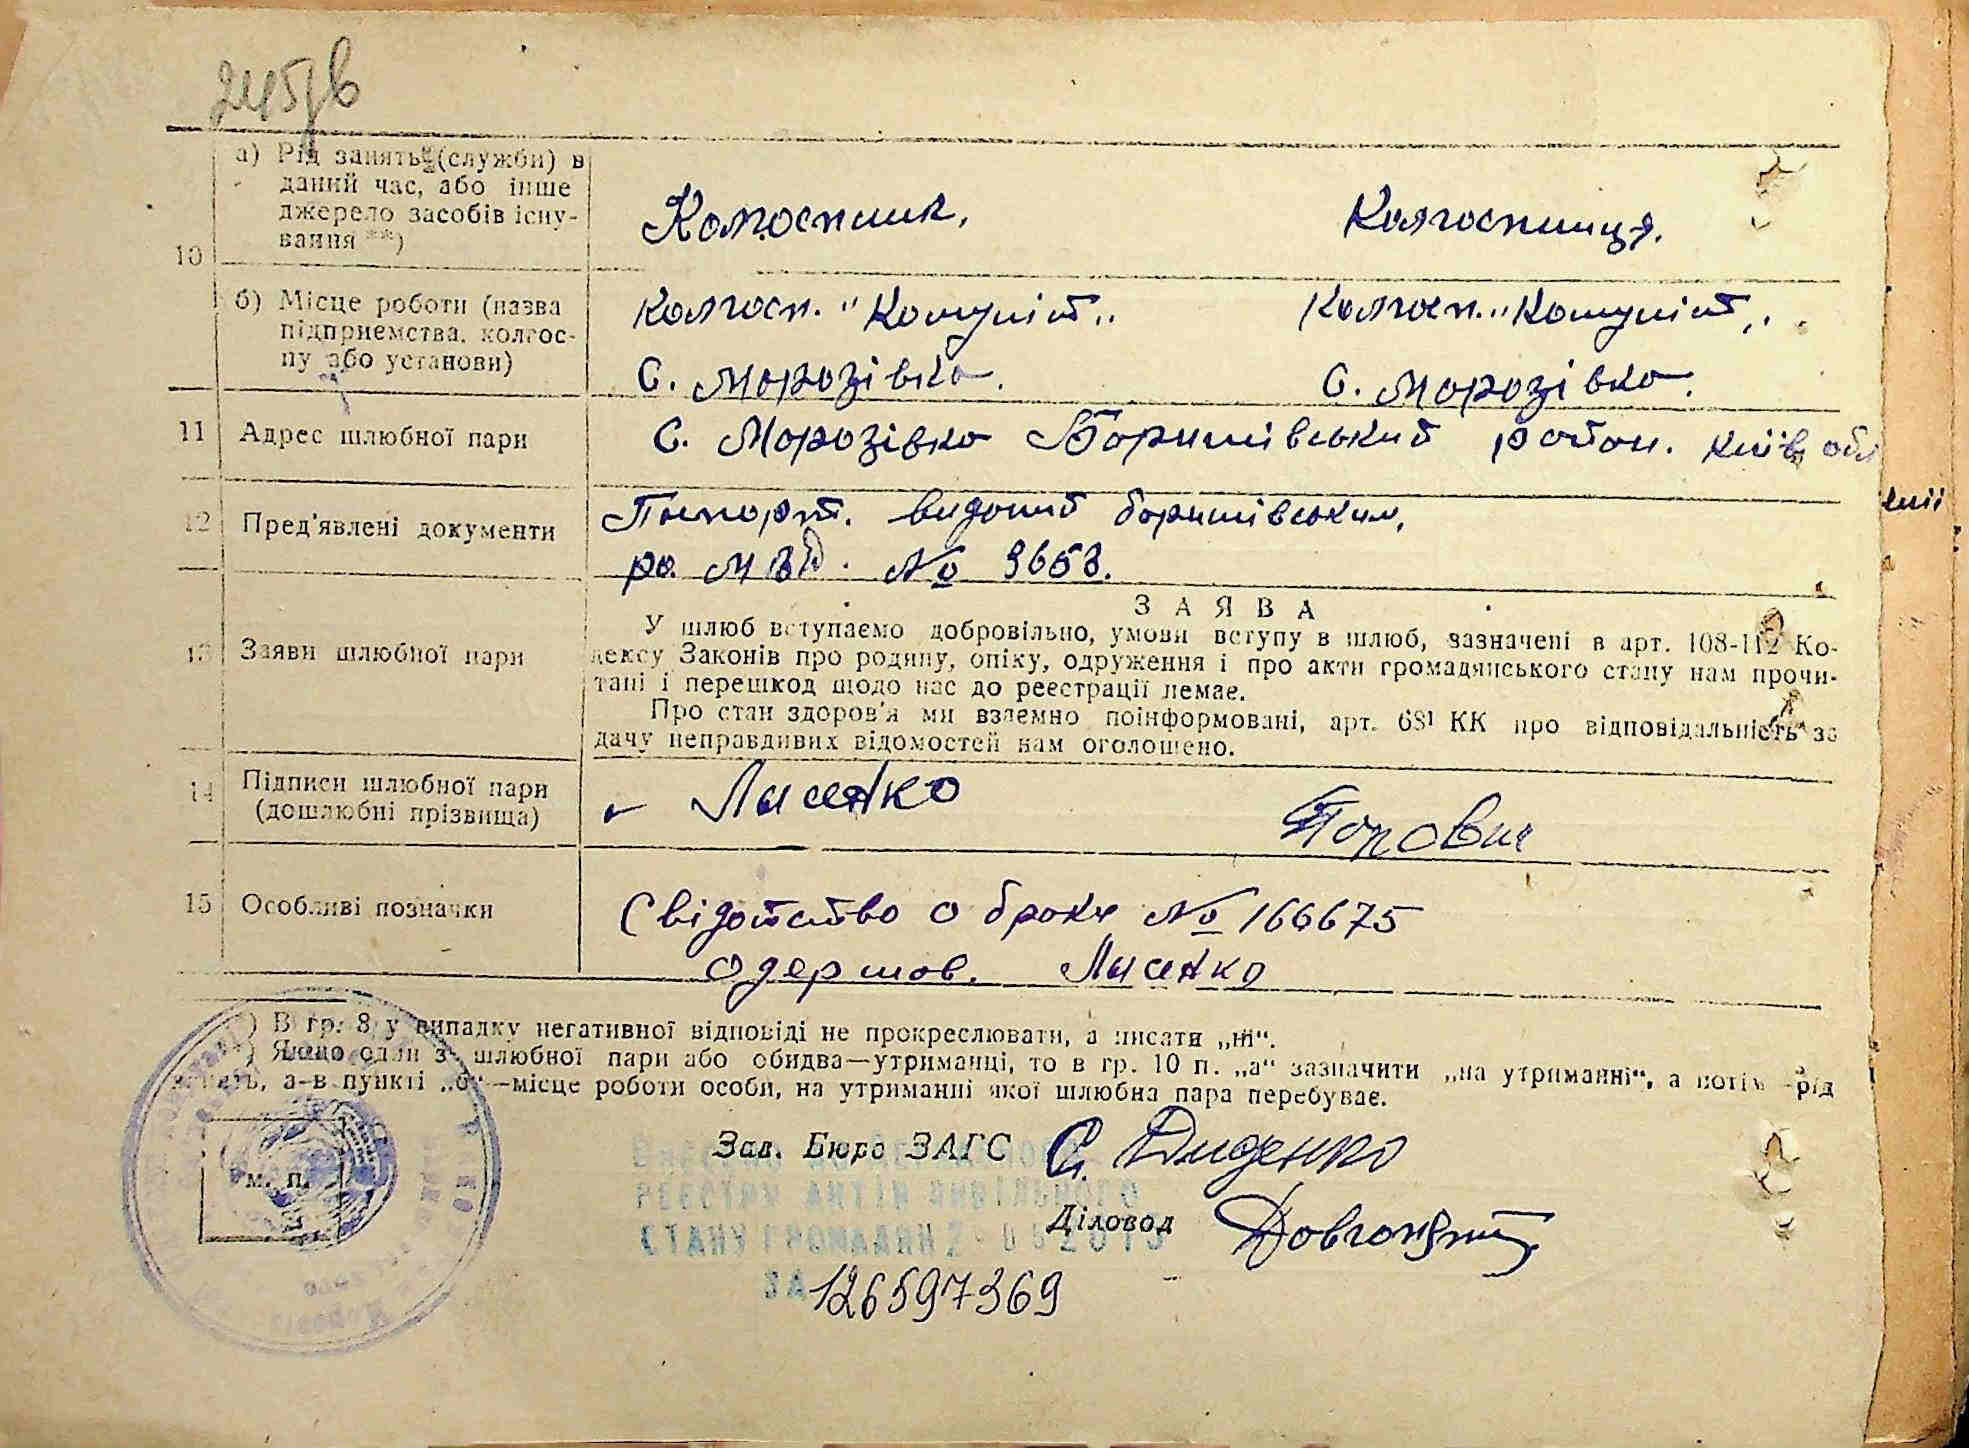 245/в
а) Рід занять (служби) в
даний час, або інше
джерело засобів існу-
вання **)
10
Колгоспник.
Колгоспниця.
б) Місце роботи (назва
підприємства, колгос-
пу або установи)
Колгосп. "Комуніст„
Колгосп. "Комуніст„.
С. Морозівка.
С. Морозівка.
11 Адрес шлюбної пари
С. Морозівка Баришівський район. Київ обл
12 Пред'явлені документи
Паспорт. виданий баришівським,
ро. МВД. № 3653.
13 Заяви шлюбної пари
ЗАЯВА
У шлюб вступаємо добровільно, умови вступу в шлюб, зазначені в арт. 108-112 Ко-
дексу Законів про родину, опіку, одруження і про акти громадянського стану нам прочи-
тані і перешкод щодо нас до реєстрації немає.
Про стан здоров'я ми взаємно поінформовані, арт. 68¹ КК про відповідальність за
дачу неправдивих відомостей нам оголошено.
14 Підписи шлюбної пари
(дошлюбні прізвища)
Лисенко
Попович
15 Особливі позначки
Свідотство о браке № 166675
одержав. Лисенко
*) В гр. 8 у випадку негативної відповіді не прокреслювати, а писати „ні“.
**) Якщо один з шлюбної пари або обидва—утриманці, то в гр. 10 п. „а“ зазначити „на утриманні“, а потім—рід
занять, а-в пункті „б“—місце роботи особи, на утриманні якої шлюбна пара перебуває.
Зав. Бюро ЗАГС С. Диденко
РЕЄСТРУ АКТІВ ЦИВІЛЬНОГО
Діловод
СТАНУ ГРОМАДЯН
ЗА 126597369
м. п.